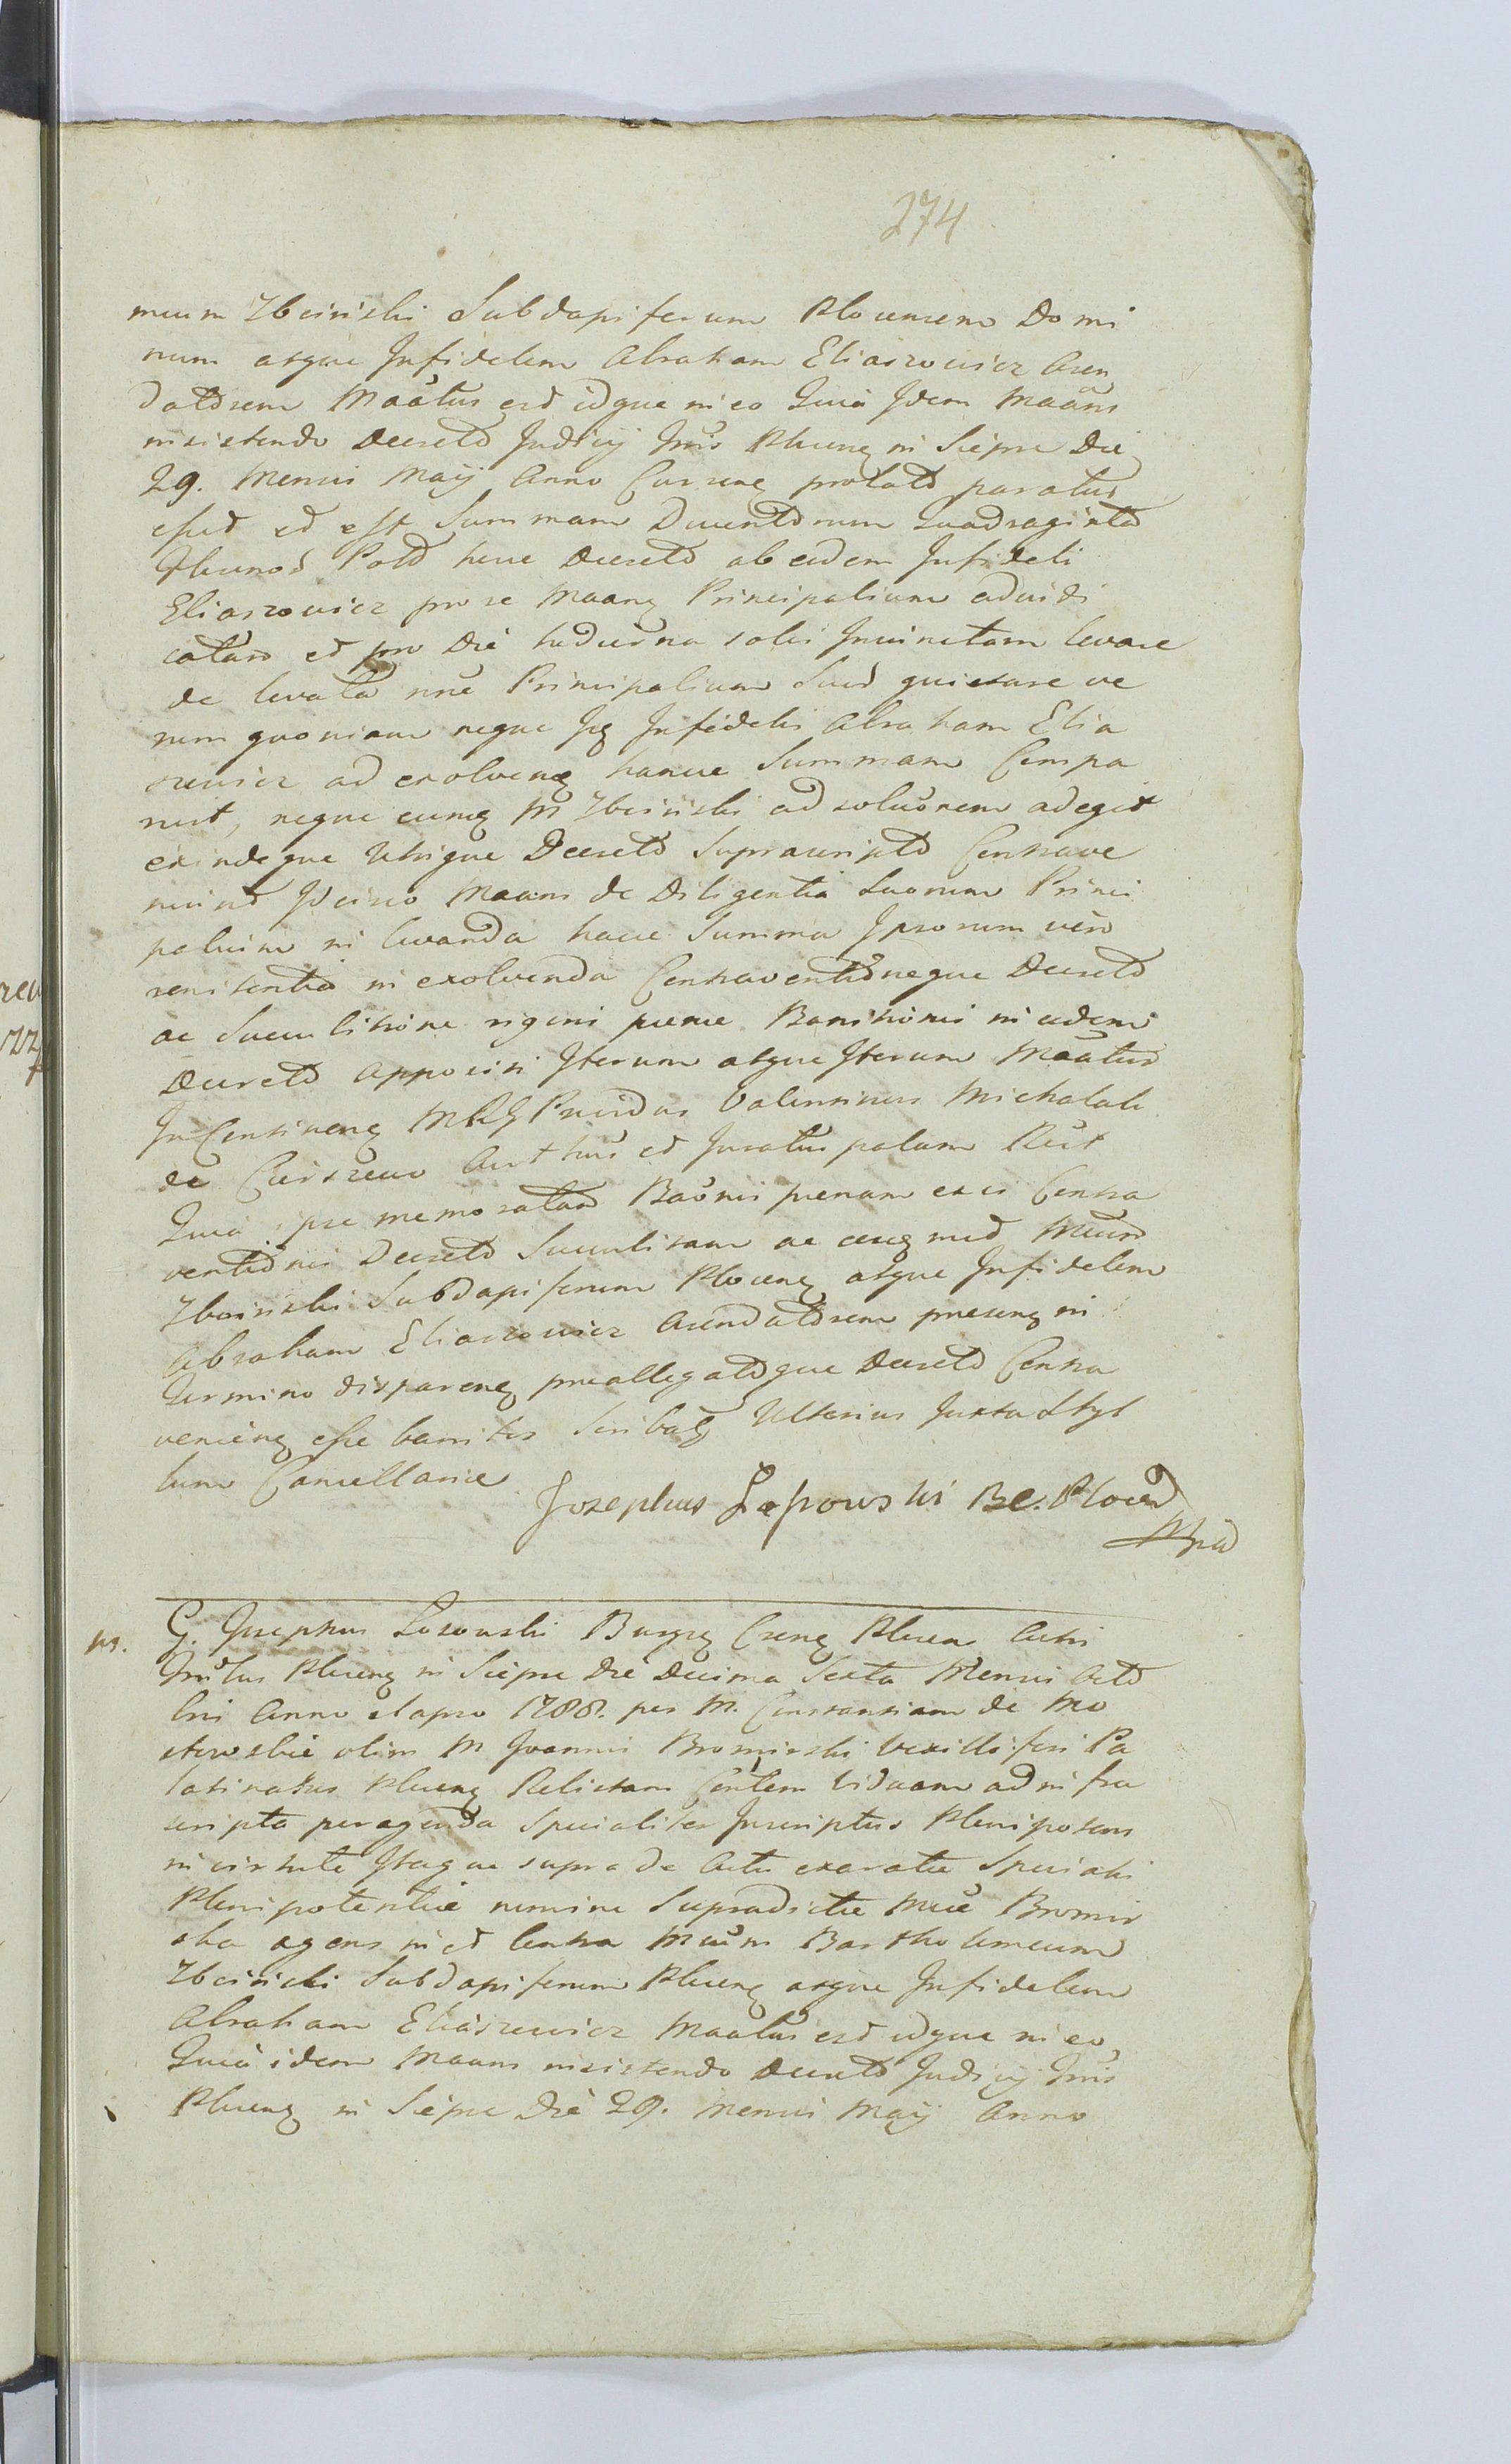 274
meum Zboinski Subdapiferum Plocensem Domi
num atque Infidelem Abraham Eliaszowicz Aren
datorem Maatus est idque in eo Quia Idem Maans
insistendo Decreto Judicij Tris Plocens in Sieprc Die
29. Mensis Maij Anno Currens prolato paratus
esset et est Summam Ducentorum Quadraginta
Flrenos Pold hocce Decreto ab eodem Infideli
Eliaszowicz pro se Maans Principalium adiudi
catam et pro Die hodierna solis Invinctam levare
de levata nne Principalium Suos quietare ve
rum quoniam neque Ip Infidelis Abraham Elia
szewicz ad exolvens hancce Summam Compa
ruit, neque eumq M Zboinski ad soluonem adegit
exindeque Utrique Decreto Suprascripto Contrave
niunt Idcirco Maans de Diligentia Suorum Princi
palium in levanda hacce Summa Ipsorum vero
renitentia in exolvenda Contraventioneque Decreto
ac Succubitione rigori pænæ Bannitionis in eodem
Decreto appositi Iterum atque Iterum Maatus
In Continens MRG Providus Valentinus Michalak
de Cierszewo Authus et Juratus palam Rect
Quia præmemoratam Baonis pænam ex is Contra
ventionis Decreto Succubitam ac eumq med Mcum
Zboinski Subdapiferum Plocens atque Infidelem
Abraham Eliaszewicz Arendatorem præsens in
Termino disparens præallegatoque Decreto Contra
veniens esse bannitos Scribatg Ulterius Juxta Styl
lum Cancellariæ
Josephus Łapowski BC. Plocen
Mpia
ps. G. Josephus Łosowski Burgrs Crens Plocen Actis
Tribus Plocens in Sieprc Die Decima Sexta Mensis Octo
bris Anno elapso 1788. per M. Constantiam de Mo
stowskie olim M Joannis Bromirski Vexilliferi Pa
latinatus Plocens Relictam Contem Viduam ad infra
scripta peragenda Specialiter Inscriptus Plenipotens
in virtute Itaque supra de Actu exaratæ Specialis
Plenipotentiæ nomine Supradictæ Mcæ Bromir
ska agens in et contra Mcum Bartholomeum
Zboinski Subdapiferum Plocens atque Infidelem
Abraham Eliaszewicz Maatus est idque in eo,
Quia idem Maans insistendo Decreto Judicij Tris
Plocens in Sieprc Die 29. Mensis Maij Anno